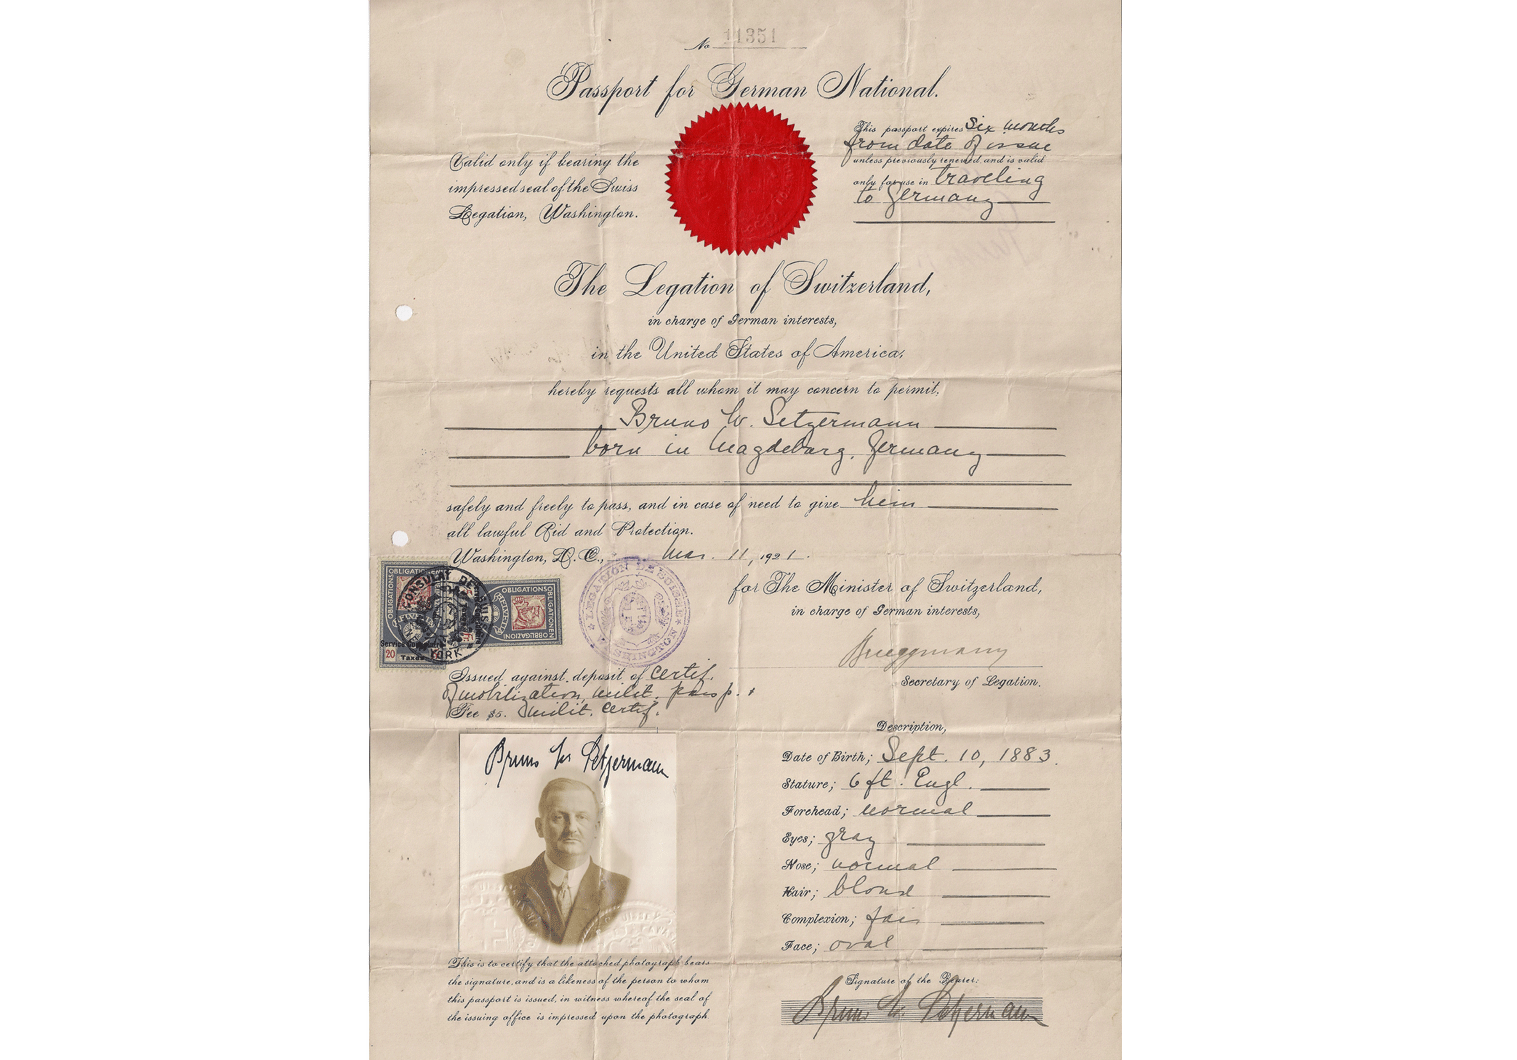 No 11351
Passport for German National.
Valid only if bearing the
impressed seal of the Swiss
Legation, Washington.
This passport expires Six months
from date of issue
unless previously renewed, and is valid
only for use in traveling
to Germany
The Legation of Switzerland,
in charge of German interests,
in the United States of America,
hereby requests all whom it may concern to permit.
Bruno W. Setzermann
born in Magdeburg, Germany
safely and freely to pass, and in case of need to give him
all lawful Aid and Protection.
Washington, D.C., Mar. 11, 1921.
for The Minister of Switzerland,
in charge of German interests,
Brueggmann
Secretary of Legation.
OBLIGATIONS
OBLIGATIONS
OBLIGATIONEN
OBLIGAZIONI
HELVETIA
20
Taxes
CONSULAT DE SUISSE
YORK
LEGATION DE SUISSE
WASHINGTON
Issued against deposit of certif.
milit. passp. +
Fee $5. milit. certif.
Bruno W Setzermann
This is to certify that the attached photograph bears
the signature, and is a likeness of the person to whom
this passport is issued, in witness whereof the seal of
the issuing office is impressed upon the photograph
Description,
Date of Birth; Sept. 10, 1883.
Stature; 6 ft. Engl.
Forehead; normal
Eyes; gray
Nose; normal
Hair; blond
Complexion; fair
Face; oval
Signature of the Bearer:
Bruno W. Setzermann